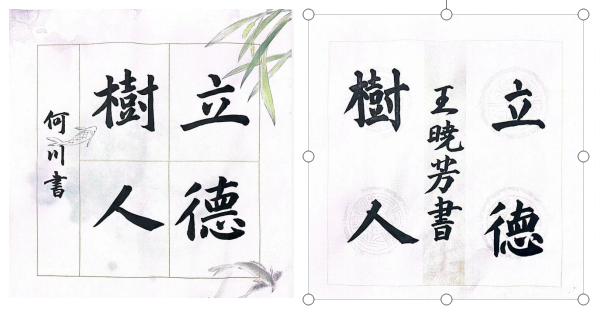 立德
樹人
何川書
立德
王曉芳書
樹人